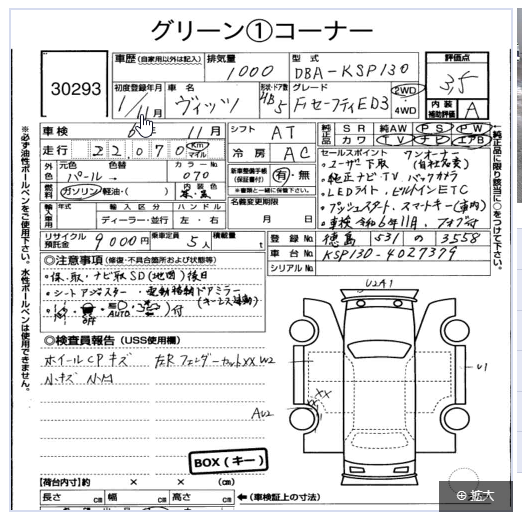 グリーン①コーナー
30293
車歴 (自家用以外は記入)
排気量
1000
型式
DBA-KSP130
評価点
3.5
初度登録年月
1/11月
車名
ヴィッツ
形状・ドア数
HB 5
グレード
Fセーフティ ED3
2WD
4WD
内装
補助評価
A
車検
6年 11月
シフト
AT
純正品
SR 純AW PS PW
カワ TV ナビ エアB
走行
22,070
Km
マイル
冷房
AC
外色
元色
パール→
色替
カラーNo.
070
燃料
ガソリン・軽油・( )
内装色
新車整備手帳
(保証書付)
有・無
※書類と一緒に保管下さい。
セールスポイント ワンオーナー
・ユーザー下取
・純正ナビ・TV バックカメラ
・LEDライト、ビルトインETC
・プッシュスタート、スマートキー(車内)
・車検令和6年11月、
輸入車用
年式
輸入区分
ディーラー・並行
ハンドル
左・右
名義変更期限
月 日
リサイクル
預託金
9000円
乗車定員
5人
積載量
t
登録No.
徳島 531 の 3558
車台No.
KSP130-4027379
シリアルNo.
※必ず油性ボールペンをご使用下さい。水性ボールペンは使用できません。
純正品に限り該当に○をつけて下さい。
◎注意事項 (修復・不具合箇所および状態等)
・保、取、ナビ取SD(地図)後日
・シートアジャスター・電動格納ドアミラー
(キーレス連動)
OFF
AUTO
付
◎検査員報告 (USS使用欄)
ホイールCPキズ 左Rフェンダーセット XX W2
小キズ 小凹
U2A1
U1
XX
AU2
BOX(キー)
【荷台内寸】約 × × (cm)
長さ cm 幅 cm 高さ cm
←(車検証上の寸法)
拡大